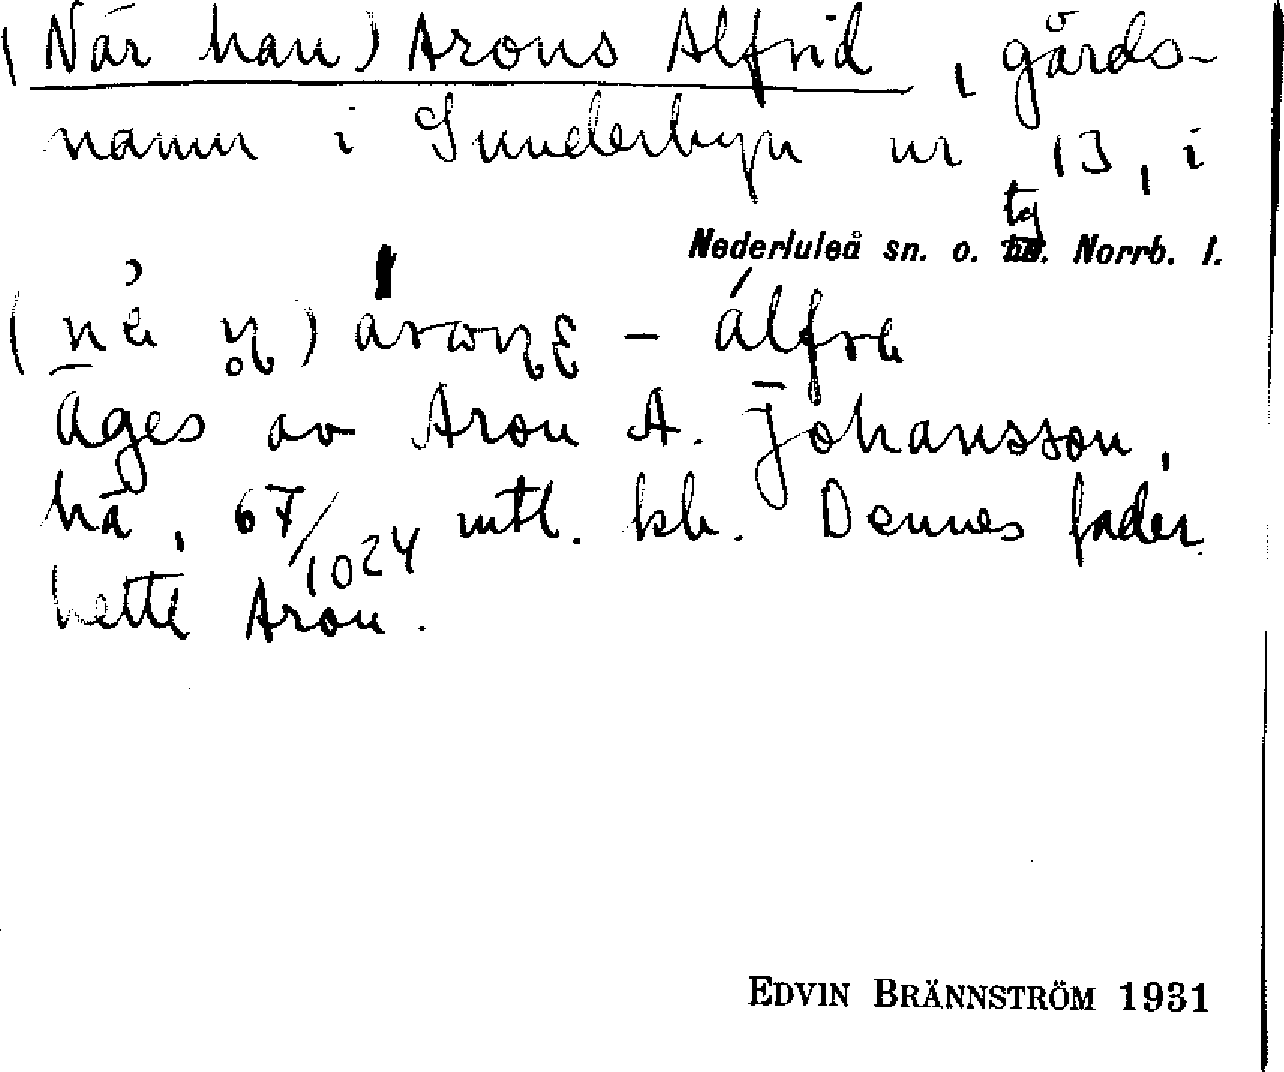 (När han) Arons Alfrid, gårds-
namn i Sunderbyn nr 13, i
Nederluleå sn. o. tg. Norrb. l.
Äges av Aron A. Johansson,
ha, 67/1024 mtl. kh. Dennes fader
hette Aron.
EDVIN BRÄNNSTRÖM 1931